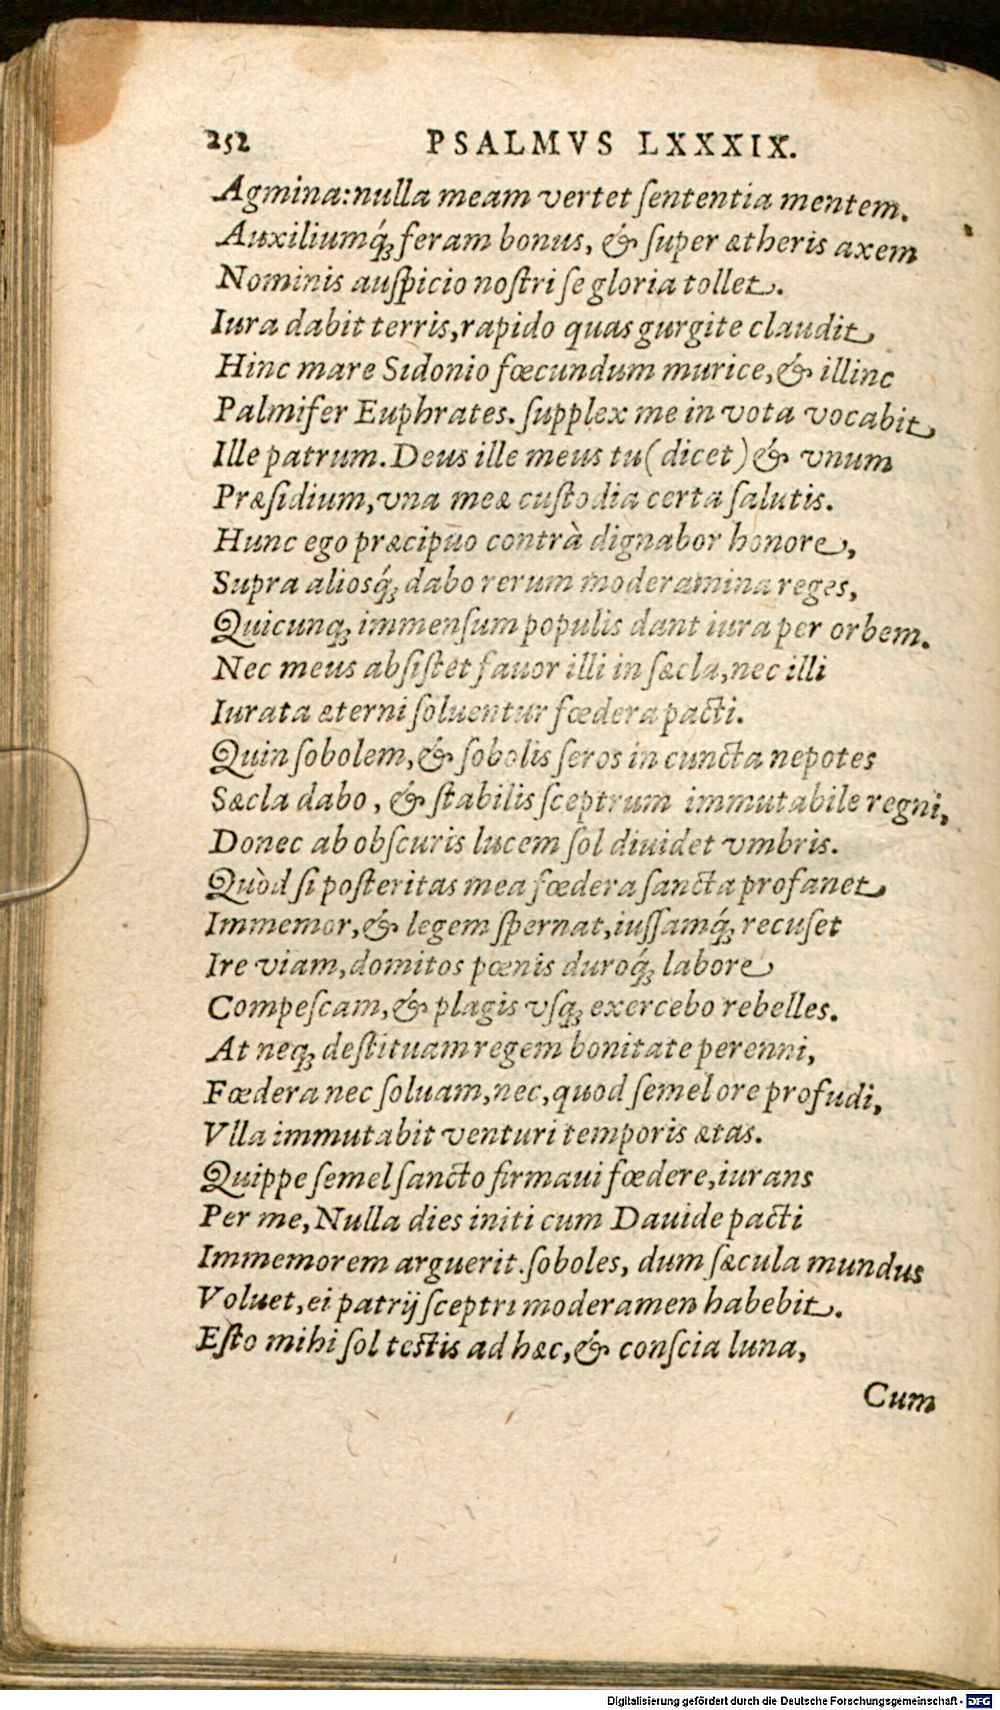 252 PSALMVS LXXXIX.
Agmina: nulla meam vertet ſententia mentem.
Auxiliumq́; feram bonus, & ſuper ætheris axem
Nominis auſpicio noſtri ſe gloria tollet.
Iura dabit terris, rapido quas gurgite claudit
Hinc mare Sidonio fœcundum murice, & illinc
Palmifer Euphrates. ſupplex me in vota vocabit
Ille patrum. Deus ille meus tu (dicet) & vnum
Præſidium, vna meæ cuſtodia certa ſalutis.
Hunc ego præcipuo contrà dignabor honore,
Supra aliosq́; dabo rerum moderamina reges,
Quicunq; immenſum populis dant iura per orbem.
Nec meus abſiſtet fauor illi in ſæcla, nec illi
Iurata æterni ſoluentur fœdera pacti.
Quin ſobolem, & ſobolis ſeros in cuncta nepotes
Sæcla dabo, & ſtabilis ſceptrum immutabile regni,
Donec ab obſcuris lucem ſol diuidet vmbris.
Quòd ſi poſteritas mea fœdera ſancta profanet
Immemor, & legem ſpernat, iuſſamq́; recuſet
Ire viam, domitos pœnis duroq́; labore
Compeſcam, & plagis vſq; exercebo rebelles.
At neq; deſtituam regem bonitate perenni,
Fœdera nec ſoluam, nec, quod ſemel ore profudi,
Vlla immutabit venturi temporis ætas.
Quippe ſemel ſancto firmaui fœdere, iurans
Per me, Nulla dies initi cum Dauide pacti
Immemorem arguerit. ſoboles, dum ſæcula mundus
Voluet, ei patrij ſceptri moderamen habebit.
Eſto mihi ſol teſtis ad hæc, & conſcia luna,
Cum
Digitalisierung gefördert durch die Deutsche Forschungsgemeinschaft - DFG